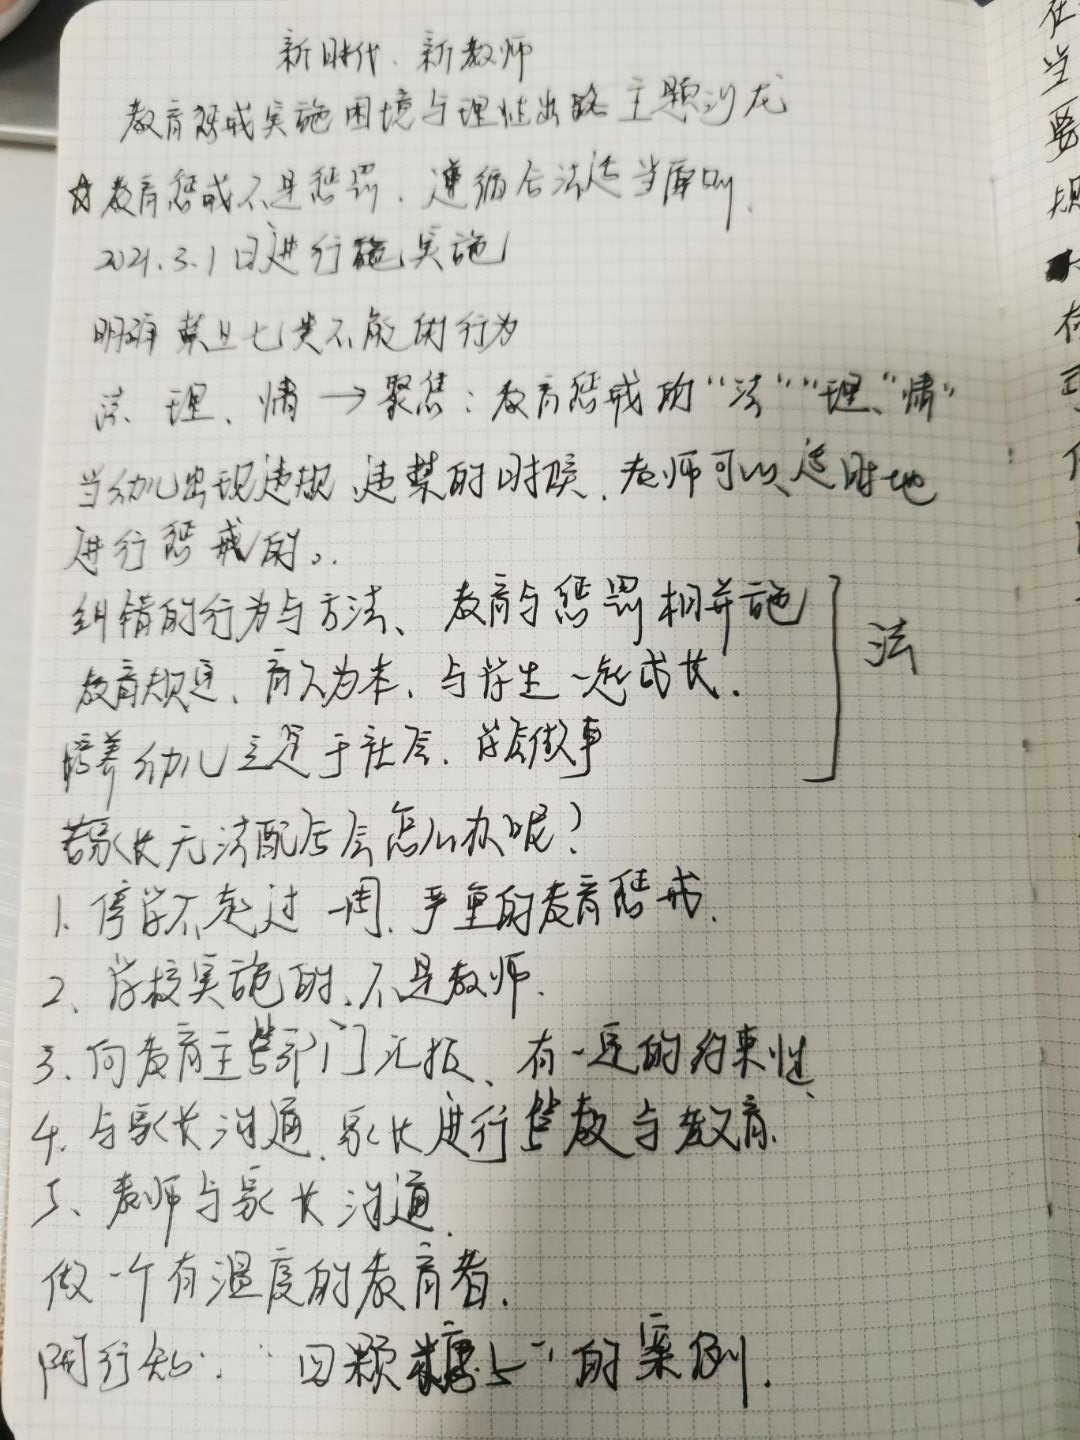 新时代、新教师
教育惩戒实施困境与理性出路主题沙龙
☆教育惩戒不是惩罚、遵循合法适当原则、
2021.3.1日进行施实施
明确禁止七类不能的行为
法、理、情→聚焦：教育惩戒的“法”“理”、“情”
当幼儿出现违规、违禁的时候、老师可以适时地
进行惩戒的。
纠错的行为与方法、教育与惩罚相并施
教育规范、育人为本、与学生一起成长.
法
培养幼儿立足于社会、学会做事
若家长无法配合会怎么办呢？
1、停学不超过一周、严重的教育惩戒.
2、学校实施的、不是教师.
3、向教育主管部门汇报、有一定的约束性、
4、与家长沟通、家长进行管教与教育.
5、教师与家长沟通.
做一个有温度的教育者.
陶行知：“四颗糖”的案例.
在
当
要
规